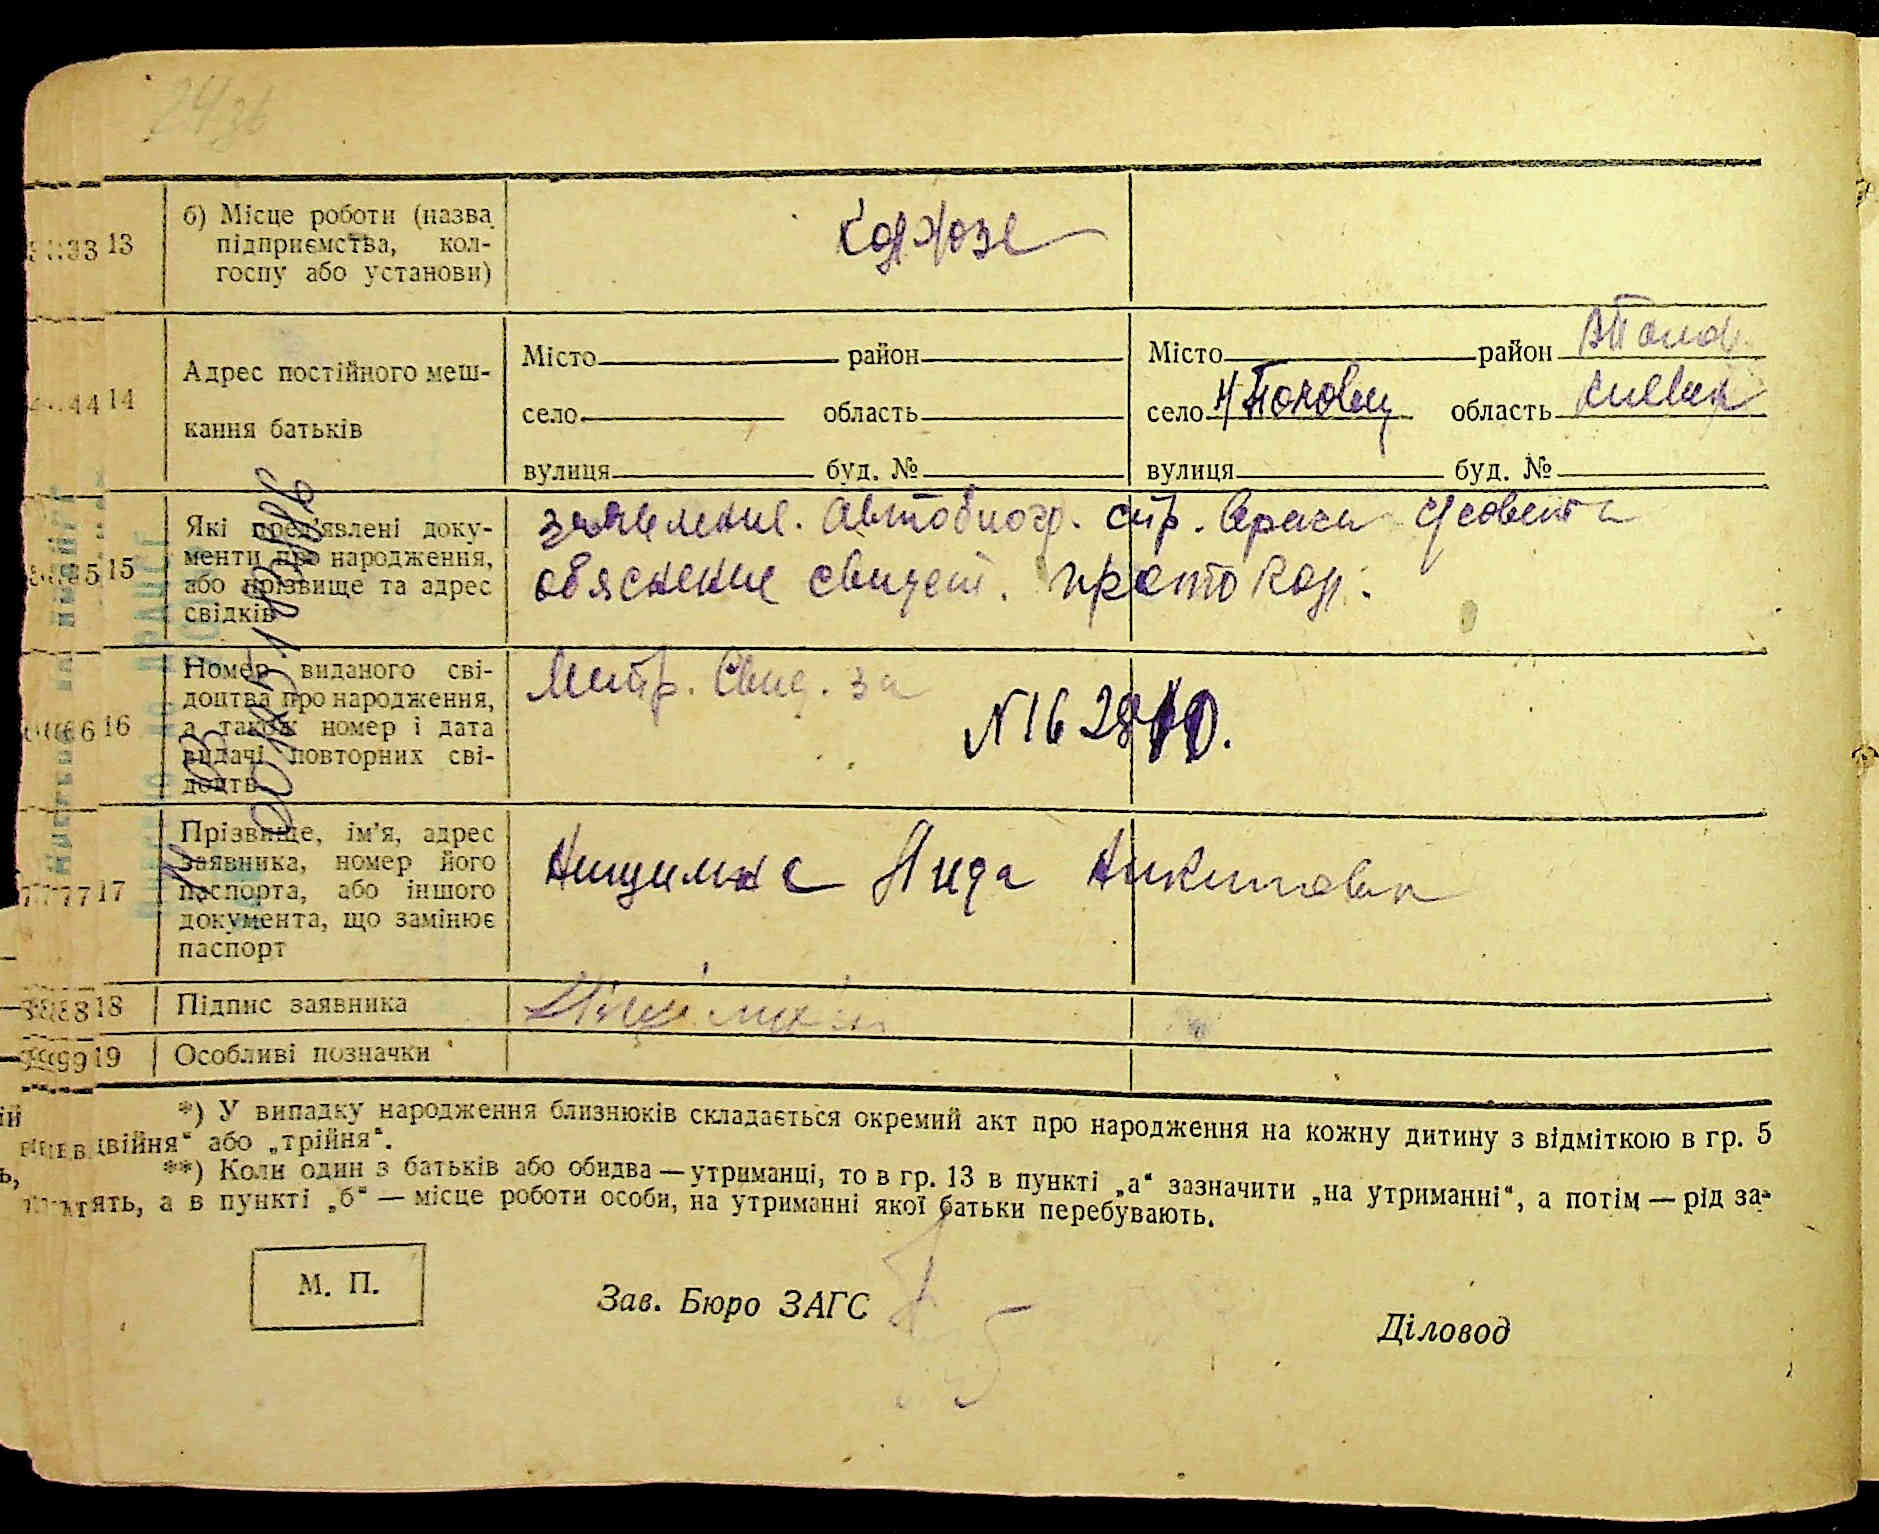 24 зв
13
б) Місце роботи (назва
підприємства, кол-
госпу або установи)
Колхозе
14
Адрес постійного меш-
кання батьків
Місто район
село область
вулиця буд. №
Місто район
село Н Половец область Киевск
вулиця буд. №
15
Які пред'явлені доку-
менти про народження,
або прізвище та адрес
свідків
заявление. Автобиогр. спр. Врача С/совета
обяснение свидет. протокол.
16
Номер виданого сві-
доцтва про народження,
а також номер і дата
видачі повторних сві-
доцтв
Метр. Свид. за
N 16
17
Прізвище, ім'я, адрес
заявника, номер його
паспорта, або іншого
документа, що замінює
паспорт
Лида Никитовна
18
Підпис заявника
19
Особливі позначки
*) У випадку народження близнюків складається окремий акт про народження на кожну дитину з відміткою в гр. 5
двійня“ або „трійня“.
**) Коли один з батьків або обидва — утриманці, то в гр. 13 в пункті „а“ зазначити „на утриманні“, а потім — рід за-
нять, а в пункті „б“ — місце роботи особи, на утриманні якої батьки перебувають.
М. П.
Зав. Бюро ЗАГС
Діловод